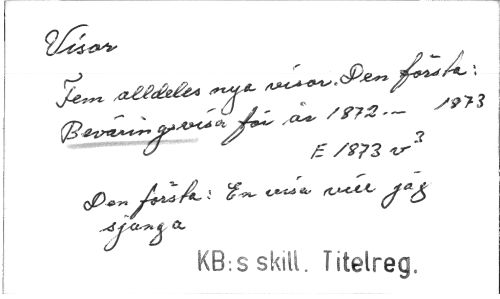 Visor
Fem alldeles nya visor. Den första:
Beväringsvisa för år 1872.— 1873
E 1873 v³
Den första: En visa vill jag
sjunga
KB:s skill. Titelreg.